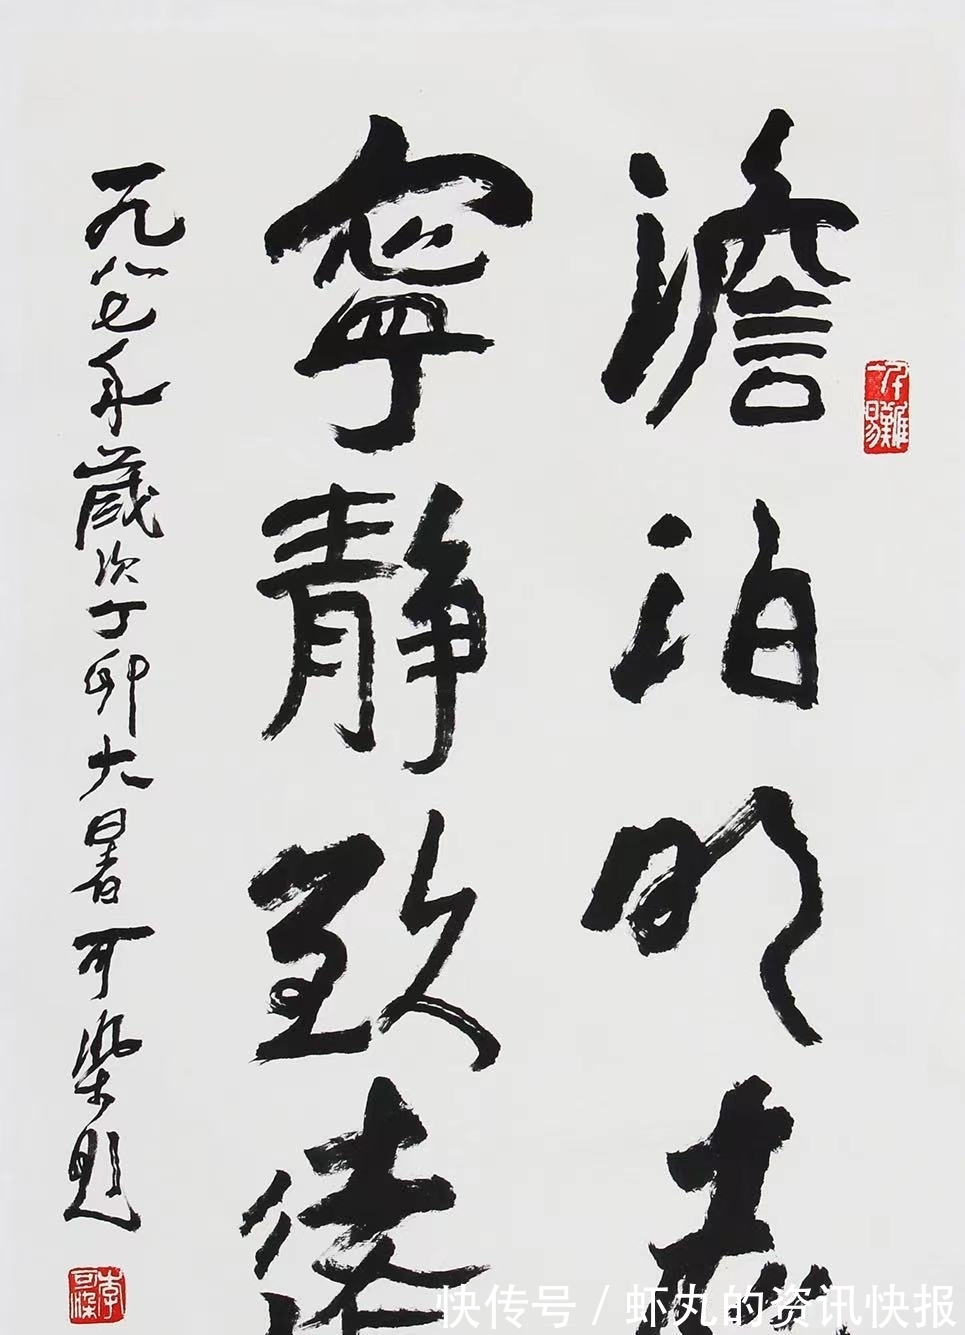 澹泊明志
寧静致遠
一九八七年歲次丁卯大暑可染題
李可染
快传号 / 虾丸的资讯快报